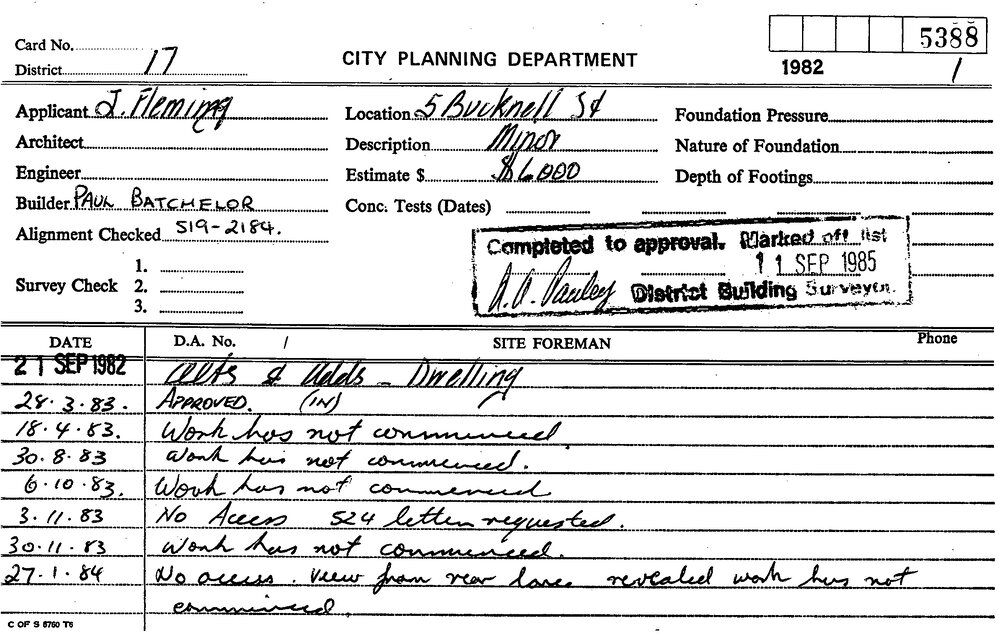 Card No.
5388
District 17
CITY PLANNING DEPARTMENT
1982 /
Applicant J. Fleming
Location 5 Bucknell St
Foundation Pressure
Architect
Description Minor
Nature of Foundation
Engineer
Estimate $ $6,000
Depth of Footings
Builder PAUL BATCHELOR
Conc. Tests (Dates)
Alignment Checked 519-2184.
Completed to approval. Marked off list
11 SEP 1985
District Building Surveyor.
Survey Check
1.
2.
3.
DATE D.A. No. / SITE FOREMAN Phone
21 SEP 1982 Alts & Adds - Dwelling
28.3.83. APPROVED. (IN)
18.4.83. Work has not commenced.
30.8.83 Work has not commenced.
6.10.83. Work has not commenced
3.11.83 No Access 524 letter requested.
30.11.83 Work has not commenced.
27.1.84 No access. View from rear lane revealed work has not
commenced.
C OF S 6760 T6